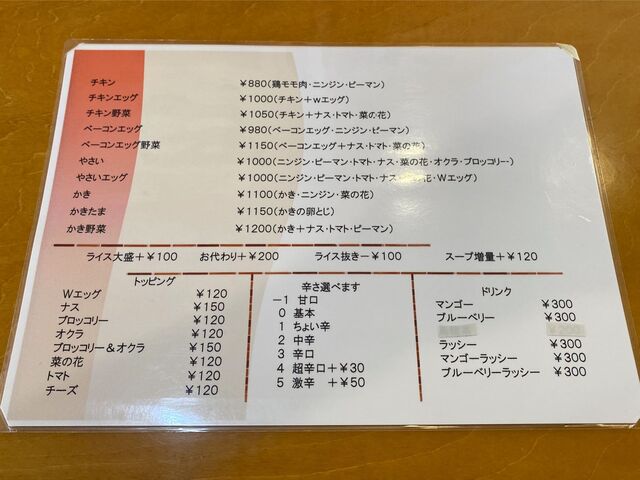 チキン ¥880(鶏モモ肉・ニンジン・ピーマン)
チキンエッグ ¥1000(チキン+wエッグ)
チキン野菜 ¥1050(チキン+ナス・トマト・菜の花)
ベーコンエッグ ¥980(ベーコンエッグ・ニンジン・ピーマン)
ベーコンエッグ野菜 ¥1150(ベーコンエッグ+ナス・トマト・菜の花)
やさい ¥1000(ニンジン・ピーマン・トマト・ナス・菜の花・オクラ・ブロッコリー・)
やさいエッグ ¥1000(ニンジン・ピーマン・トマト・ナス・ 花・Wエッグ)
かき ¥1100(かき・ニンジン・菜の花)
かきたま ¥1150(かきの卵とじ)
かき野菜 ¥1200(かき+ナス・トマト・ピーマン)
ライス大盛+¥100 お代わり+¥200 ライス抜き−¥100 スープ増量+¥120
トッピング
Wエッグ ¥120
ナス ¥150
ブロッコリー ¥120
オクラ ¥120
ブロッコリー&オクラ ¥150
菜の花 ¥120
トマト ¥120
チーズ ¥120
辛さ選べます
−1 甘口
0 基本
1 ちょい辛
2 中辛
3 辛口
4 超辛口+¥30
5 激辛 +¥50
ドリンク
マンゴー ¥300
ブルーベリー ¥300
ラッシー ¥300
マンゴーラッシー ¥300
ブルーベリーラッシー ¥300